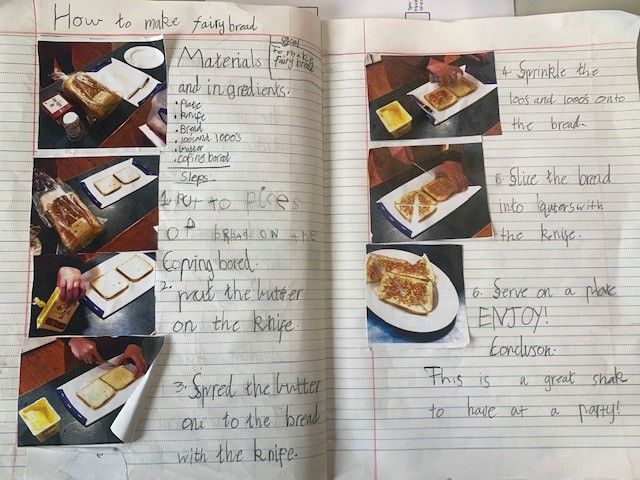 How to make fairybread
goal
To make
fairy bread
Materials
and ingredients.
• Plate
• knife
• Bread
• 100s and 1000's
• butter
• coping bored
Steps
1. Put to pices
of bread on the
Corving bored.
2. prut the butter
on the knife.
3. Spred the butter
on to the bread
with the knife.
4. Sprinkle the
100s and 1000s onto
the bread.
5. Slice the bread
into quters with
the knife.
6. Serve on a plate
ENJOY!
Concluson:
This is a great snak
to have at a party!